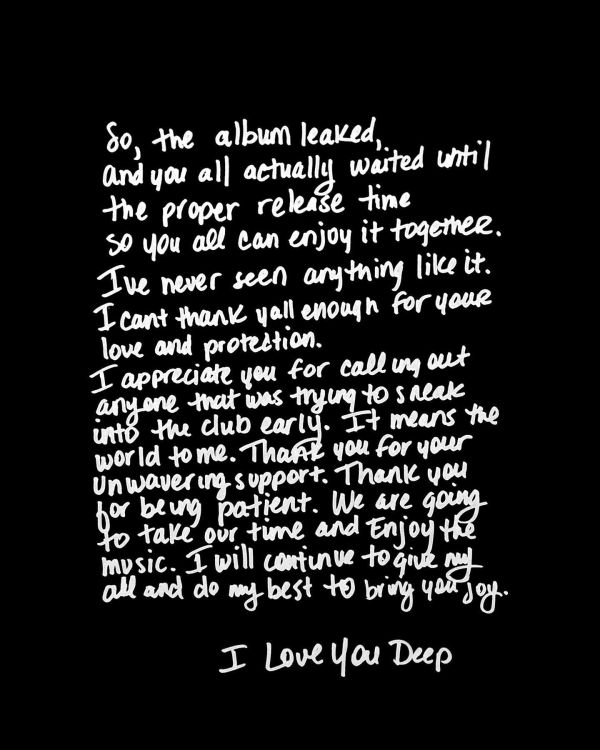 So, the album leaked,
and you all actually waited until
the proper release time
so you all can enjoy it together.
I've never seen anything like it.
I cant thank yall enough for your
love and protection.
I appreciate you for calling out
anyone that was trying to sneak
into the club early. It means the
world to me. Thank you for your
unwavering support. Thank you
for being patient. We are going
to take our time and Enjoy the
music. I will continue to give my
all and do my best to bring you joy.
I Love You Deep